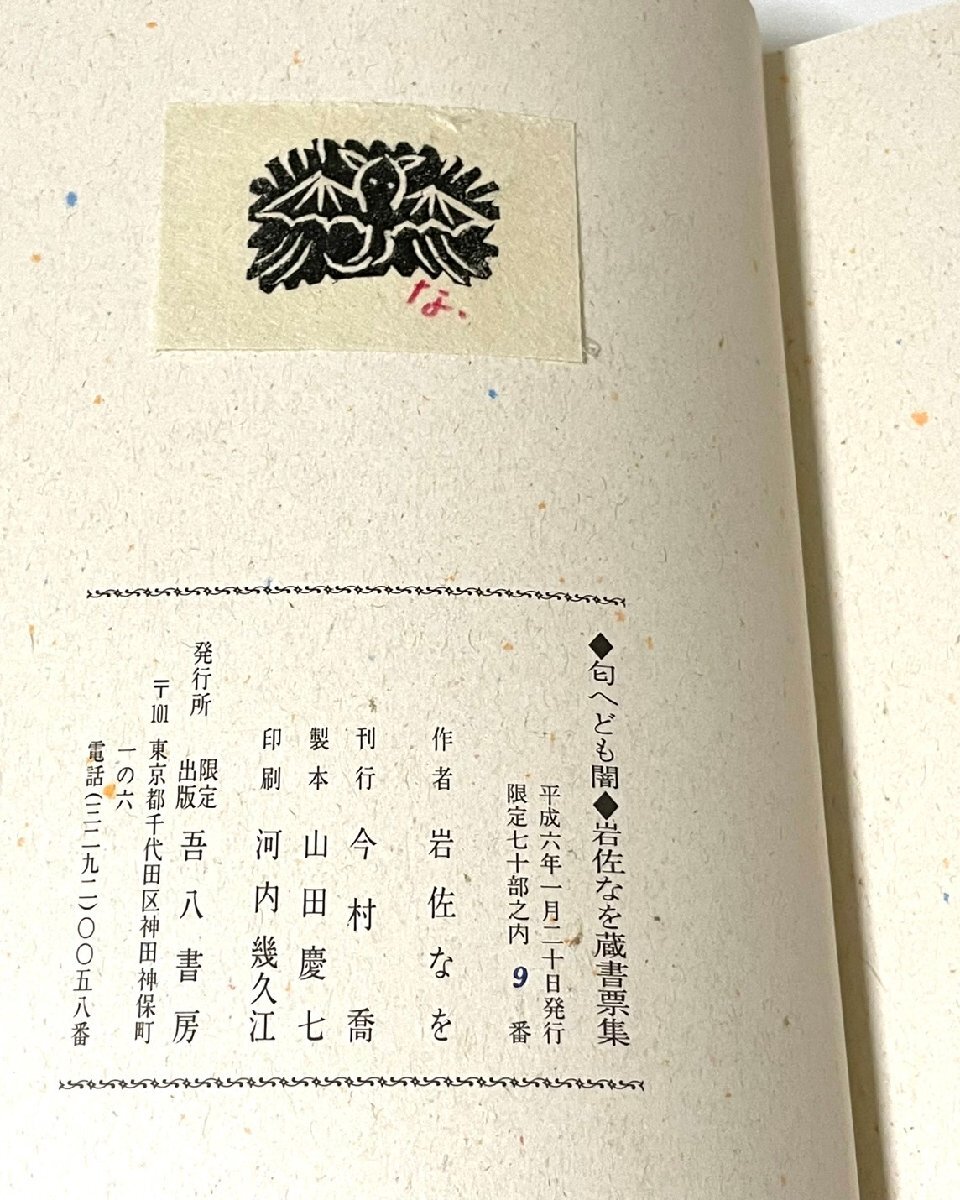 な.
◆匂へども闇◆岩佐なを蔵書票集
平成六年一月二十日発行
限定七十部之内 9 番
作者 岩佐なを
刊行 今村喬
製本 山田慶七
印刷 河内幾久江
発行所 限定出版 吾八書房
〒101 東京都千代田区神田神保町
一の六
電話(三二九二)〇〇五八番